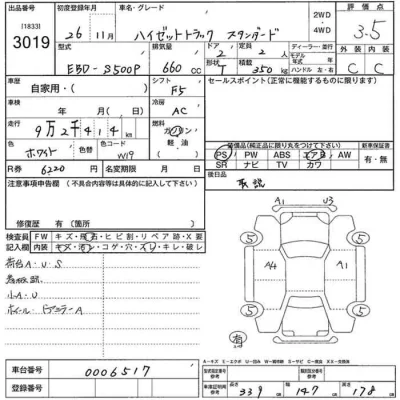 出品番号 初度登録年月 車名・グレード 2WD・4WD 評価点
[1833]
3019 26年11月 ハイゼットトラック スタンダード 3.5
型式 排気量 ドア 定員 ディーラー・並行 外装 内装
EBD-S500P 660cc 2 2人
形状 積載 モデル年式 年
T 350kg ハンドル 左・右 C C
車歴 シフト セールスポイント(正常に機能するものに限ります)
自家用・( ) F5
車検 年 月( ) 冷房 AC
走行 9万2千414km 燃料 ガソリン・軽油
色 ホワイト 色替 色コード W19
装備品(純正品に限り丸をつけて下さい) 新車保証書
PS PW ABS エアB AW 有・無
SR ナビ TV カワ
R券 6220円 名変期限 月 日
後日品 取説
注意事項申告欄(不具合等は具体的に記入して下さい)
修復歴 有(箇所 )
検査員記入欄 FW キズ・飛石・ヒビ割・リペア跡・X要
内装 キズ・汚レ・コゲ・穴・スレ・キレ・破レ
荷台A・U・S
小A・U
A1 U3
5 5
A4 A1
5 5
有
A-キズ
車台番号 0006517
登録番号
参考
車検証明用参考 長さ 339 幅 147 高さ 178